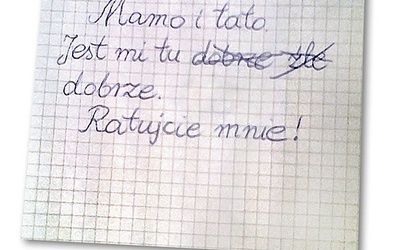 Mamo i tato.
Jest mi tu dobrze źle
dobrze.
Ratujcie mnie!